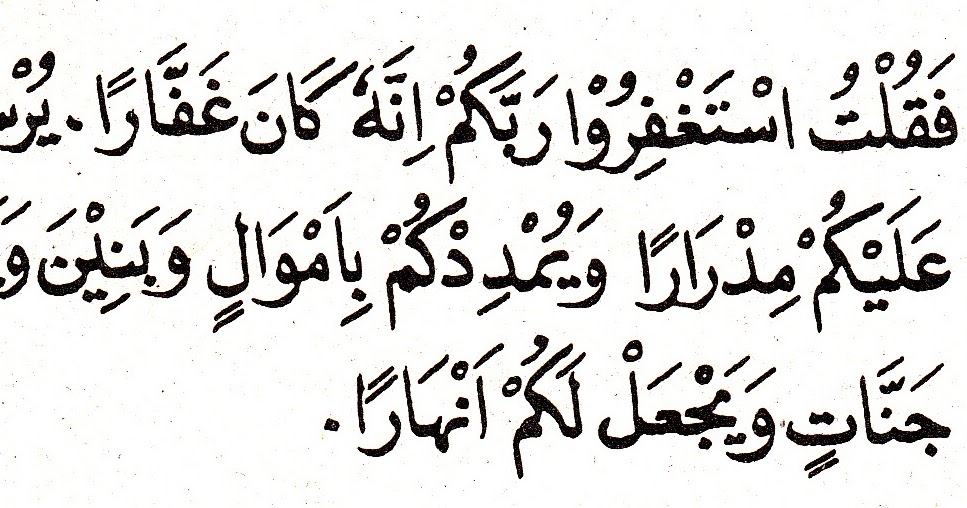 فَقُلْتُ اسْتَغْفِرُوْا رَبَّكُمْ اِنَّهُ كَانَ غَفَّارًا. يُرْسِ
عَلَيْكُمْ مِدْرَارًا وَيُمْدِدْكُمْ بِاَمْوَالٍ وَبَنِيْنَ وَيَ
جَنَّاتٍ وَيَجْعَلْ لَكُمْ اَنْهَارًا.